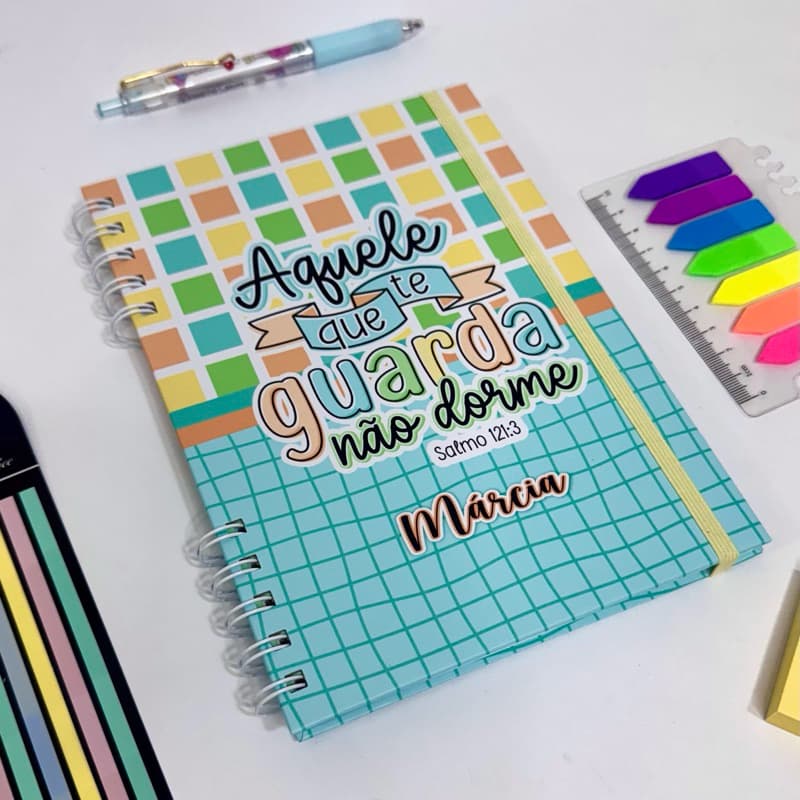 Aquele
que te
guarda
não dorme
Salmo 121:3
Márcia